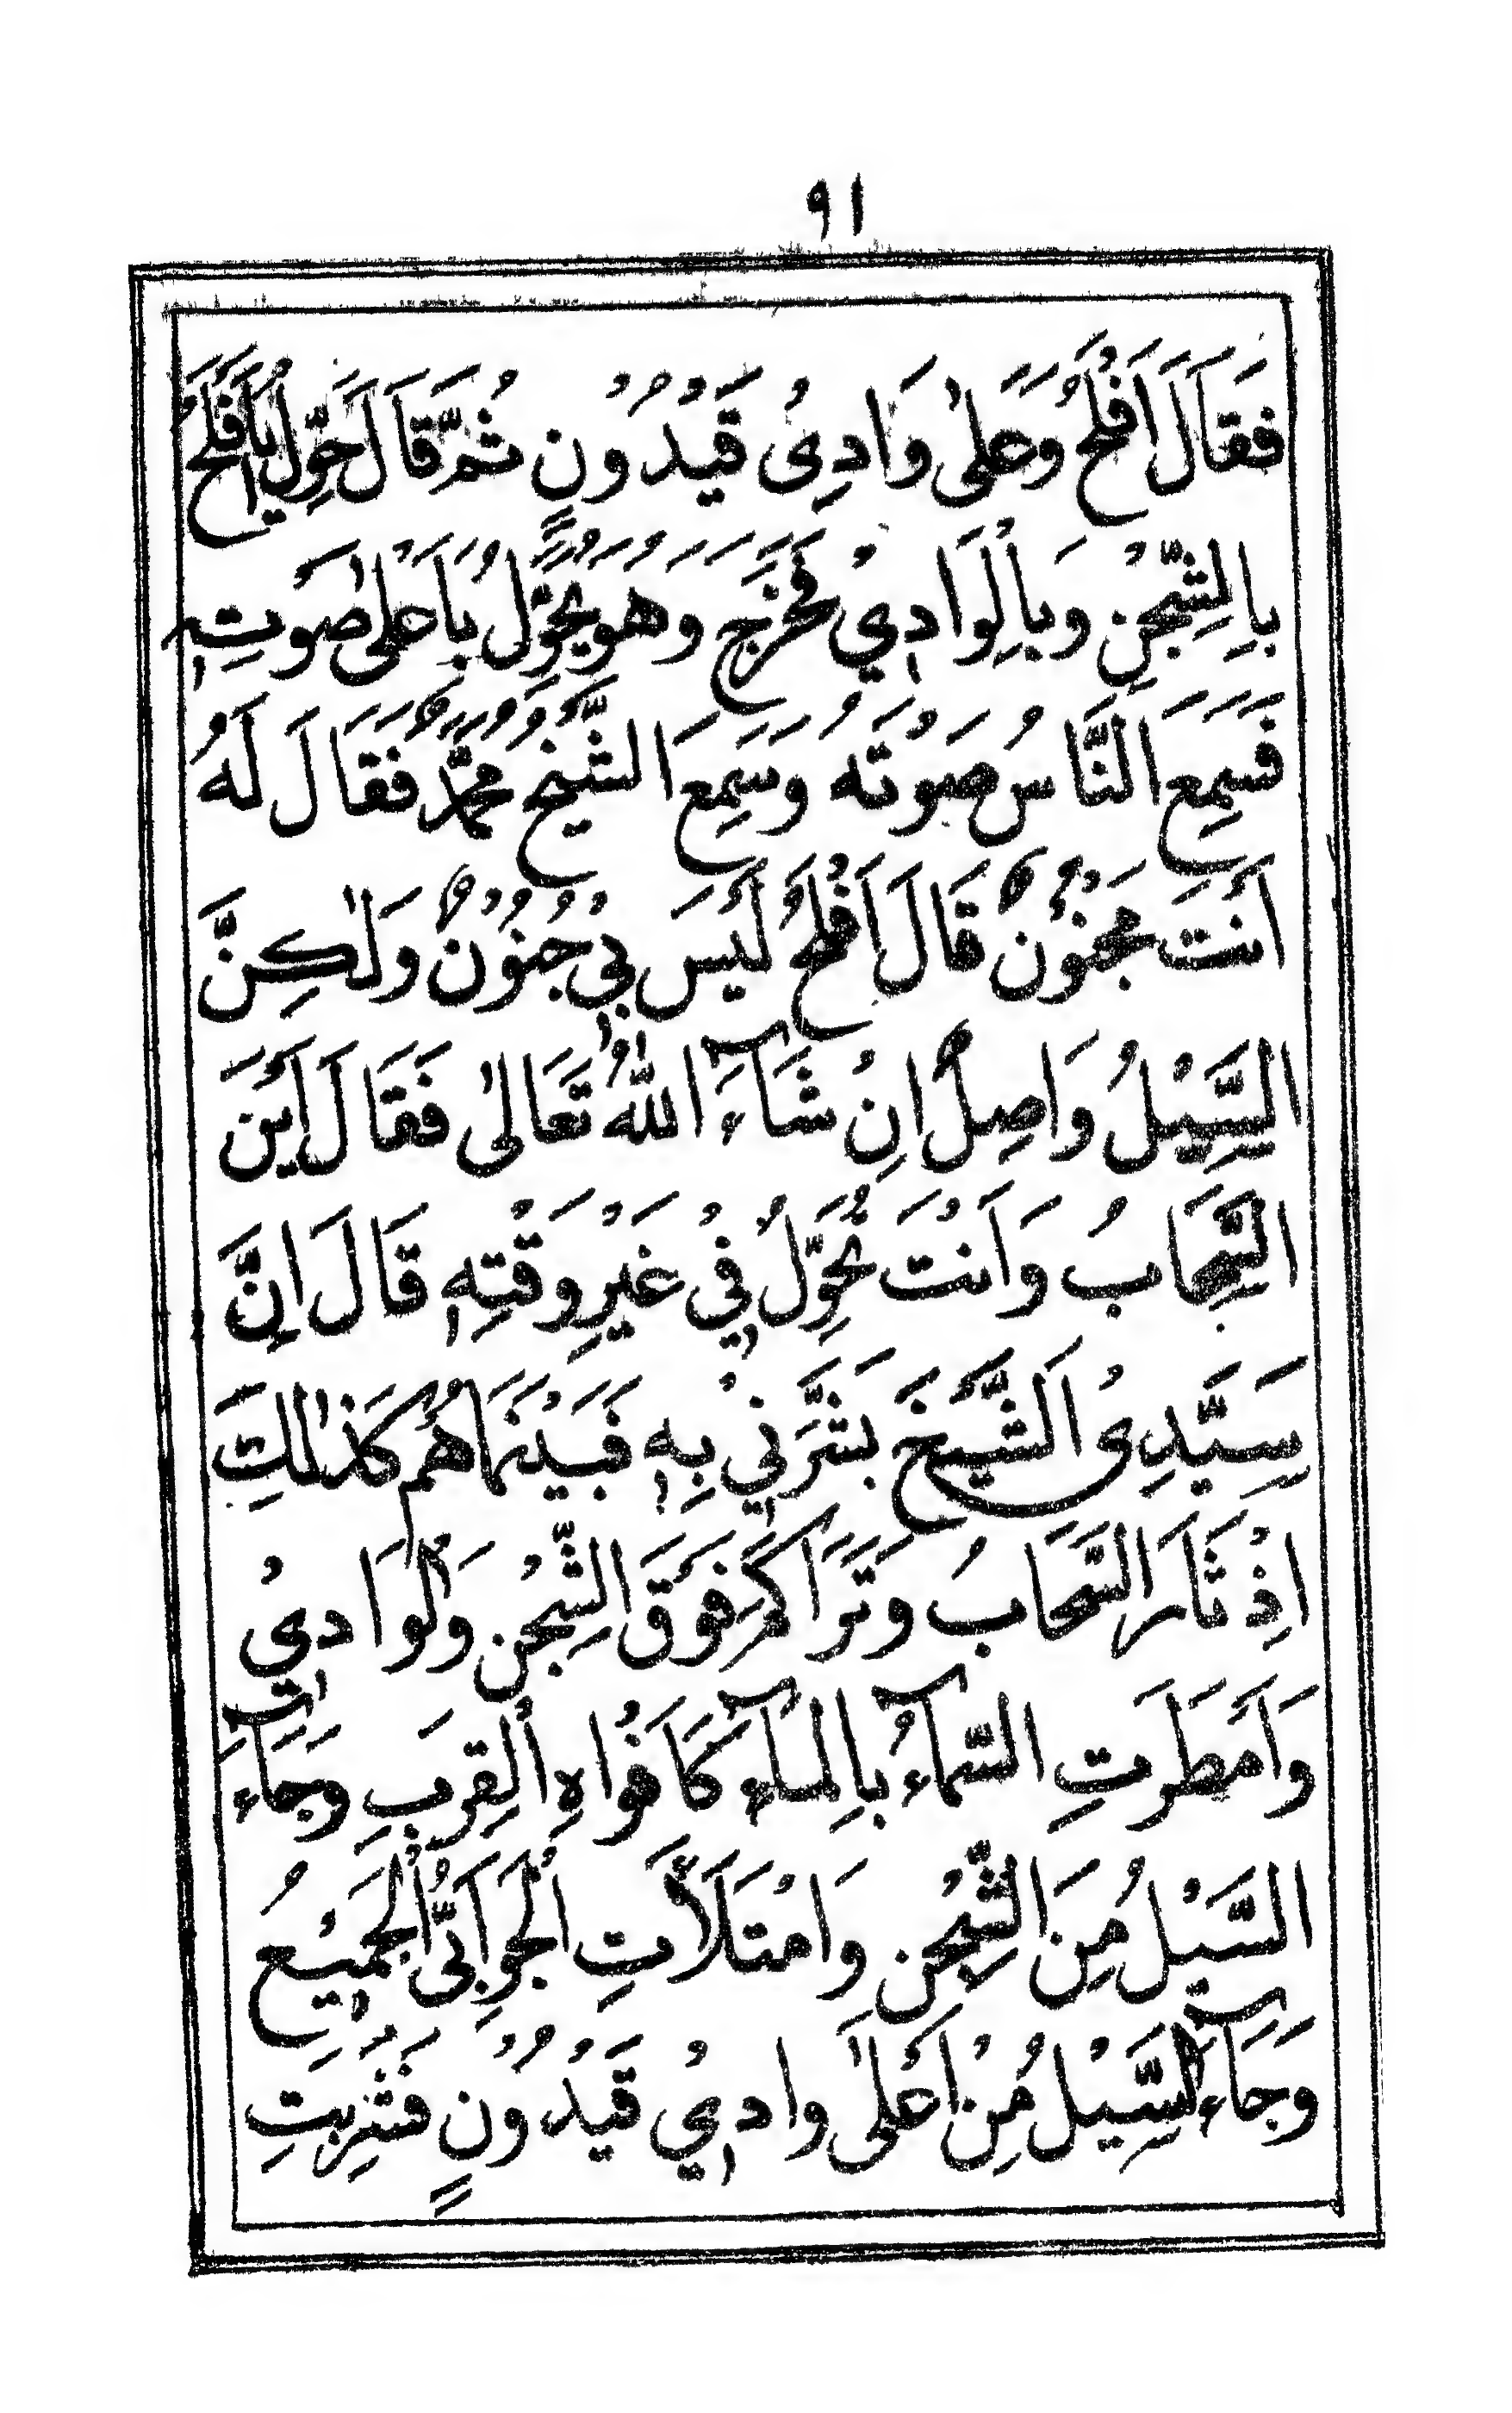 ٩١
فَقَالَ اَفْلَحُ وَعَلٰى وَادِىْ قَيْدُوْنٍ ثُمَّ قَالَ حَوِّلْ يَا اَفْلَحُ
بِالشِّحْنِ وَبِالْوَادِيْ فَخَرَجَ وَهُوَ يُحَوِّلُ بِاَعْلٰى صَوْتِهٖ
فَسَمِعَ النَّاسُ صَوْتَهُ وَسَمِعَ الشَّيْخُ مُحَمَّدٌ فَقَالَ لَهُ
اَنْتَ مَجْنُوْنٌ قَالَ اَفْلَحُ لَيْسَ بِيْ جُنُوْنٌ وَلٰكِنَّ
السَّيْلُ وَاصِلٌ اِنْ شَآءَ اللّٰهُ تَعَالٰى فَقَالَ اَيْنَ
السَّحَابُ وَاَنْتَ تُحَوِّلُ فِيْ غَيْرِ وَقْتِهٖ قَالَ اِنَّ
سَيِّدِىْ الشَّيْخَ بَشَّرَنِيْ بِهٖ فَبَيْنَمَا هُمْ كَذٰلِكَ
اِذْ ثَارَ السَّحَابُ وَتَرَاكَمَ فَوْقَ الشِّحْنِ وَالْوَادِيْ
وَاَمْطَرَتِ السَّمَآءُ بِالْمَآءِ كَاَفْوَاهِ الْقِرَبِ وَجَآءَ
السَّيْلُ مِنَ الشِّحْنِ وَامْتَلَأَتِ الْجَوَابِيُّ الْجَمِيْعُ
وَجَآءَ السَّيْلُ مِنْ اَعْلَى وَادِيْ قَيْدُوْنٍ فَشَرِبَتِ